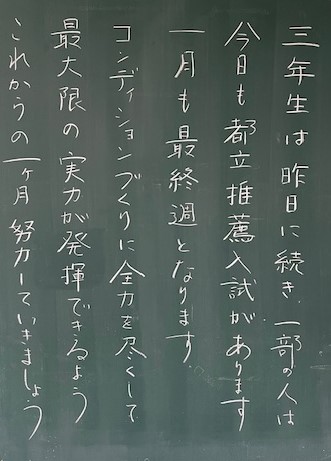 三年生は昨日に続き、一部の人は
今日も都立推薦入試があります
一月も最終週となります
コンディションづくりに全力を尽くして
最大限の実力が発揮できるよう
これからの一ヶ月努力していきましょう